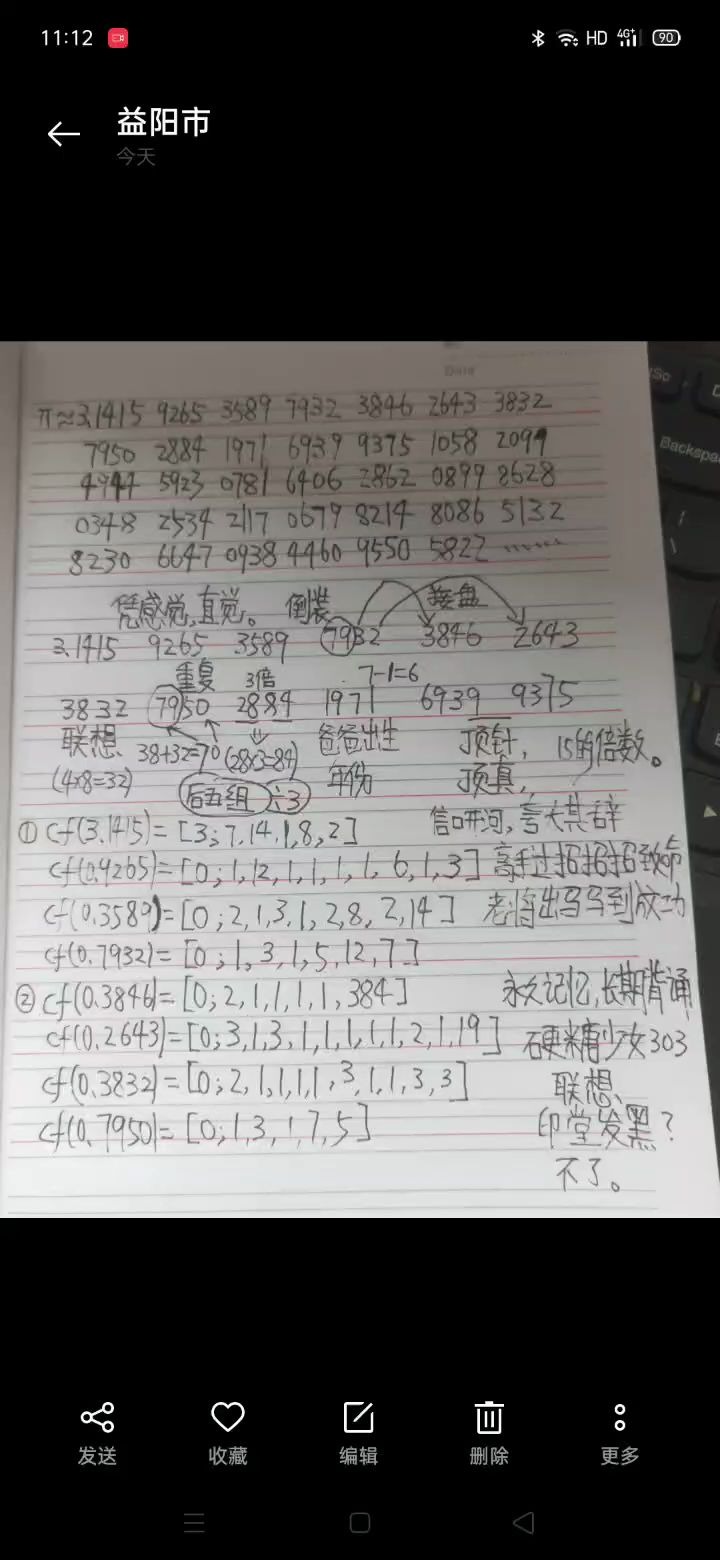 11:12
HD 4G+ 90
益阳市
今天
Date
Backspa
π≈3.1415 9265 3589 7932 3846 2643 3832
7950 2884 1971 6939 9375 1058 2099
4944 5923 0781 6406 2862 0899 8628
0348 2534 2117 0679 8214 8086 5132
8230 6647 0938 4460 9550 5822 ……
凭感觉,直觉。 倒装 接盘
3.1415 9265 3589 7932 3846 2643
重复 3倍 7-1=6
3832 7950 2884 1971 6939 9375
联想、 38+32=70 (28×3=84) 爸爸出生 顶针, 15的倍数。
(4×8=32) 后五组 六3 年份 顶真,
①cf(3.1415)=[3;7,14,1,8,2] 信口开河,夸大其辞
cf(0.9265)=[0;1,12,1,1,1,1,6,1,3] 高手过招招招致命
cf(0.3589)=[0;2,1,3,1,2,8,2,14] 老将出马马到成功
cf(0.7932)=[0;1,3,1,5,12,7]
②cf(0.3846)=[0;2,1,1,1,1,384] 永久记忆,长期背诵
cf(0.2643)=[0;3,1,3,1,1,1,1,1,2,1,19] 硬糖少女303
cf(0.3832)=[0;2,1,1,1,1,3,1,1,3,3] 联想、
cf(0.7950)=[0;1,3,1,7,5] 印堂发黑?
不了。
发送 收藏 编辑 删除 更多